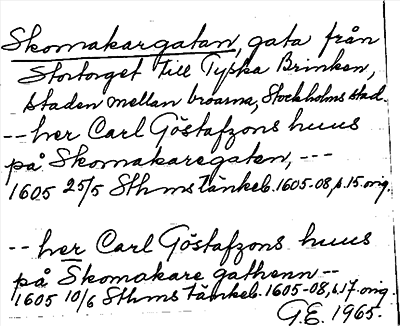 Skomakargatan, gata från
Stortorget till Tyska Brinken,
staden mellan broarna, Stockholms stad.
-- her Carl Göstafzons huus
på Skomakaregaten, ---
1605 25/5 Sthms tänkeb. 1605-08, s. 15. orig.
-- her Carl Göstafzons huus
på Skomakare gathenn --
1605 10/6 Sthms tänkeb. 1605-08, s. 17. orig.
G.E. 1965.